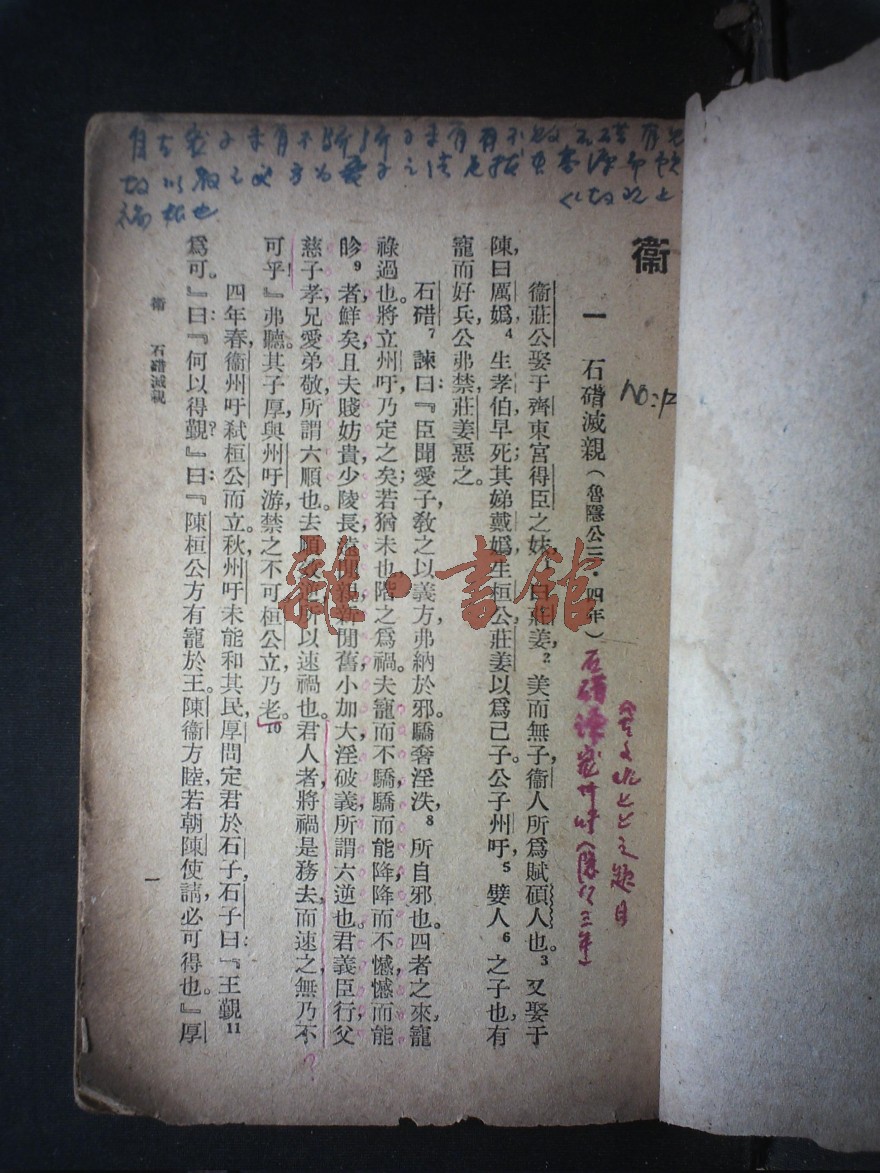 衞
一 石碏滅親（魯隱公三・四年）
衞莊公娶于齊東宮得臣之妹，1曰莊姜，2美而無子，衞人所爲賦碩人也。3又娶于
陳，曰厲嬀，4生孝伯，早死；其娣戴嬀，生桓公，莊姜以爲己子。公子州吁，5嬖人6之子也，有
寵而好兵，公弗禁，莊姜惡之。
石碏7諫曰：『臣聞愛子，教之以義方，弗納於邪。驕奢淫泆，8所自邪也。四者之來，寵
祿過也。將立州吁，乃定之矣；若猶未也，階之爲禍。夫寵而不驕，驕而能降，降而不憾，憾而能
眕9者，鮮矣。且夫賤妨貴，少陵長，遠閒親，新閒舊，小加大，淫破義，所謂六逆也。君義，臣行，父
慈，子孝，兄愛，弟敬，所謂六順也。去順效逆，所以速禍也。君人者，將禍是務去，而速之，無乃不
可乎！』弗聽。其子厚與州吁游，禁之，不可。桓公立，乃老。10
四年春，衞州吁弒桓公而立。秋，州吁未能和其民，厚問定君於石子，石子曰：『王覲11
爲可。』曰：『何以得覲？』曰：『陳桓公方有寵於王。陳衞方睦，若朝陳使請，必可得也。』厚
衞 石碏滅親
一
No:12
石碏諫寵州吁（隱公三年）
雜・書館